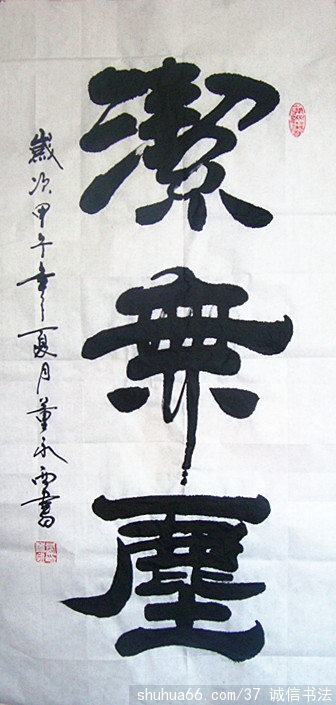 潔無塵
歲次甲午年夏月董永西書
shuhua66.com/37 诚信书法